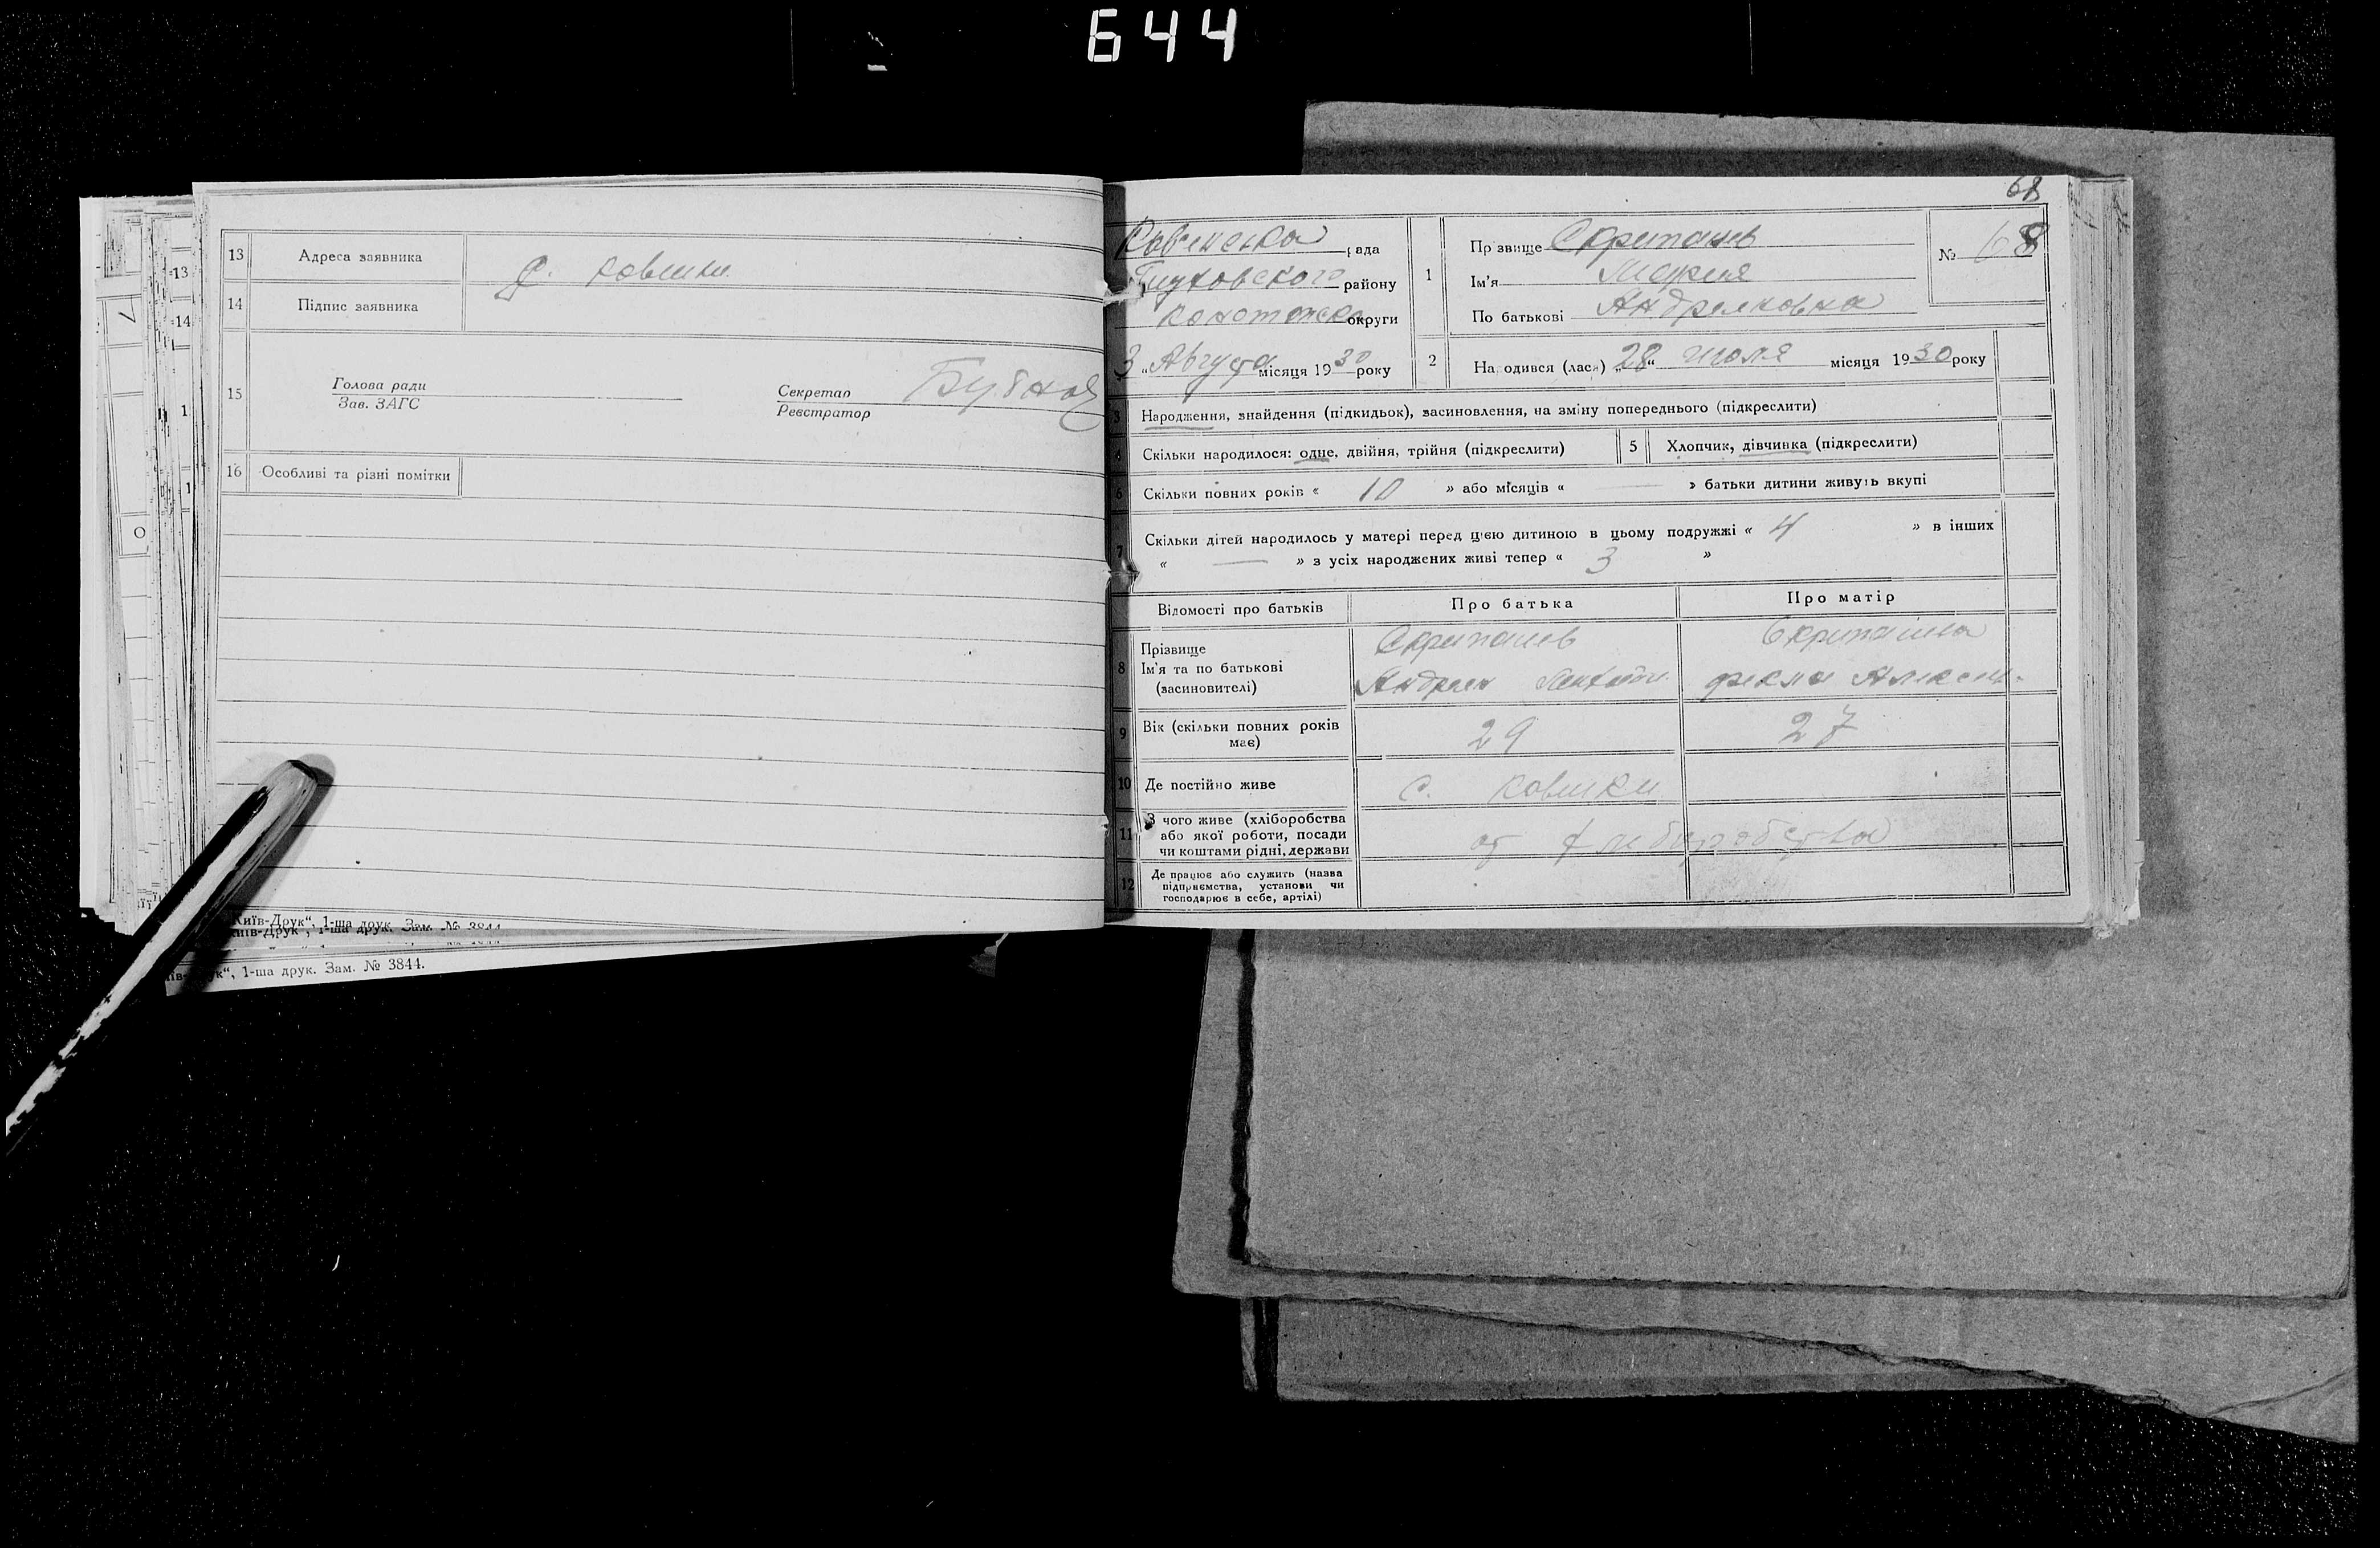 644
13 Адреса заявника с. Ковенки
14 Підпис заявника
15 Голова ради
Зав. ЗАГС
Секретар
Реєстратор
16 Особливі та різні помітки
"Київ-Друк", 1-ша друк. Зам. № 3844
1-ша друк. Зам. № 3844.
68
рада
району
округи
1 Прізвище
Ім'я Мария
По батькові Андреяновна
№ 68
3 „Августа місяця 1930 року
2 Народився (лася) „28“ июля місяця 1930 року
3 Народження, знайдення (підкидьок), засиновлення, на зміну попереднього (підкреслити)
Скільки народилося: одне, двійня, трійня (підкреслити)
5 Хлопчик, дівчинка (підкреслити)
6 Скільки повних років « 10 » або місяців « — » батьки дитини живуть вкупі
7 Скільки дітей народилось у матері перед цією дитиною в цьому подружжі « 4 » в інших
« — » з усіх народжених живі тепер « 3 »
Відомості про батьків Про батька Про матір
8 Прізвище
Ім'я та по батькові
(засиновителі)
Андреян
Фекла Алексеи.
9 Вік (скільки повних років
має)
29 27
10 Де постійно живе с.
11 З чого живе (хліборобства
або якої роботи, посади
чи коштами рідні, держави
от хлеборобства
12 Де працює або служить (назва
підприємства, установи чи
господарює в себе, артілі)